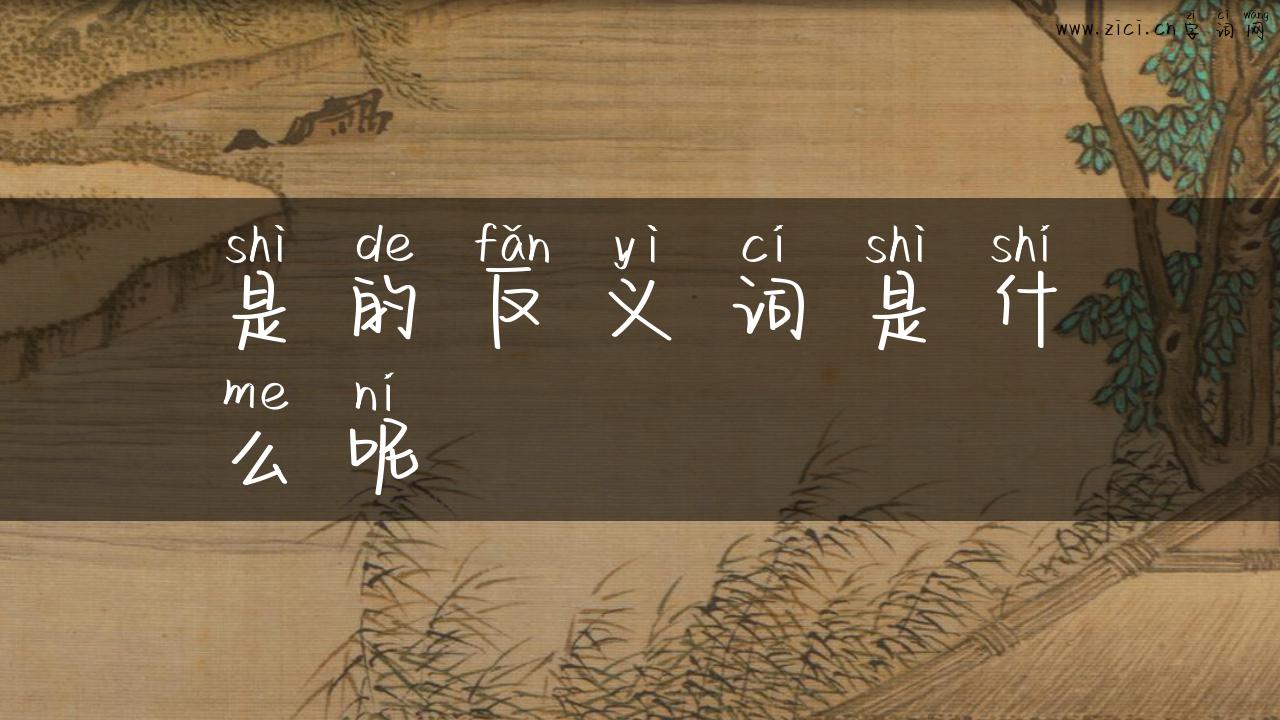 zì cí wǎng
www.zici.cn 字 词 网
shì de fǎn yì cí shì shí
是 的 反 义 词 是 什
me ní
么 呢